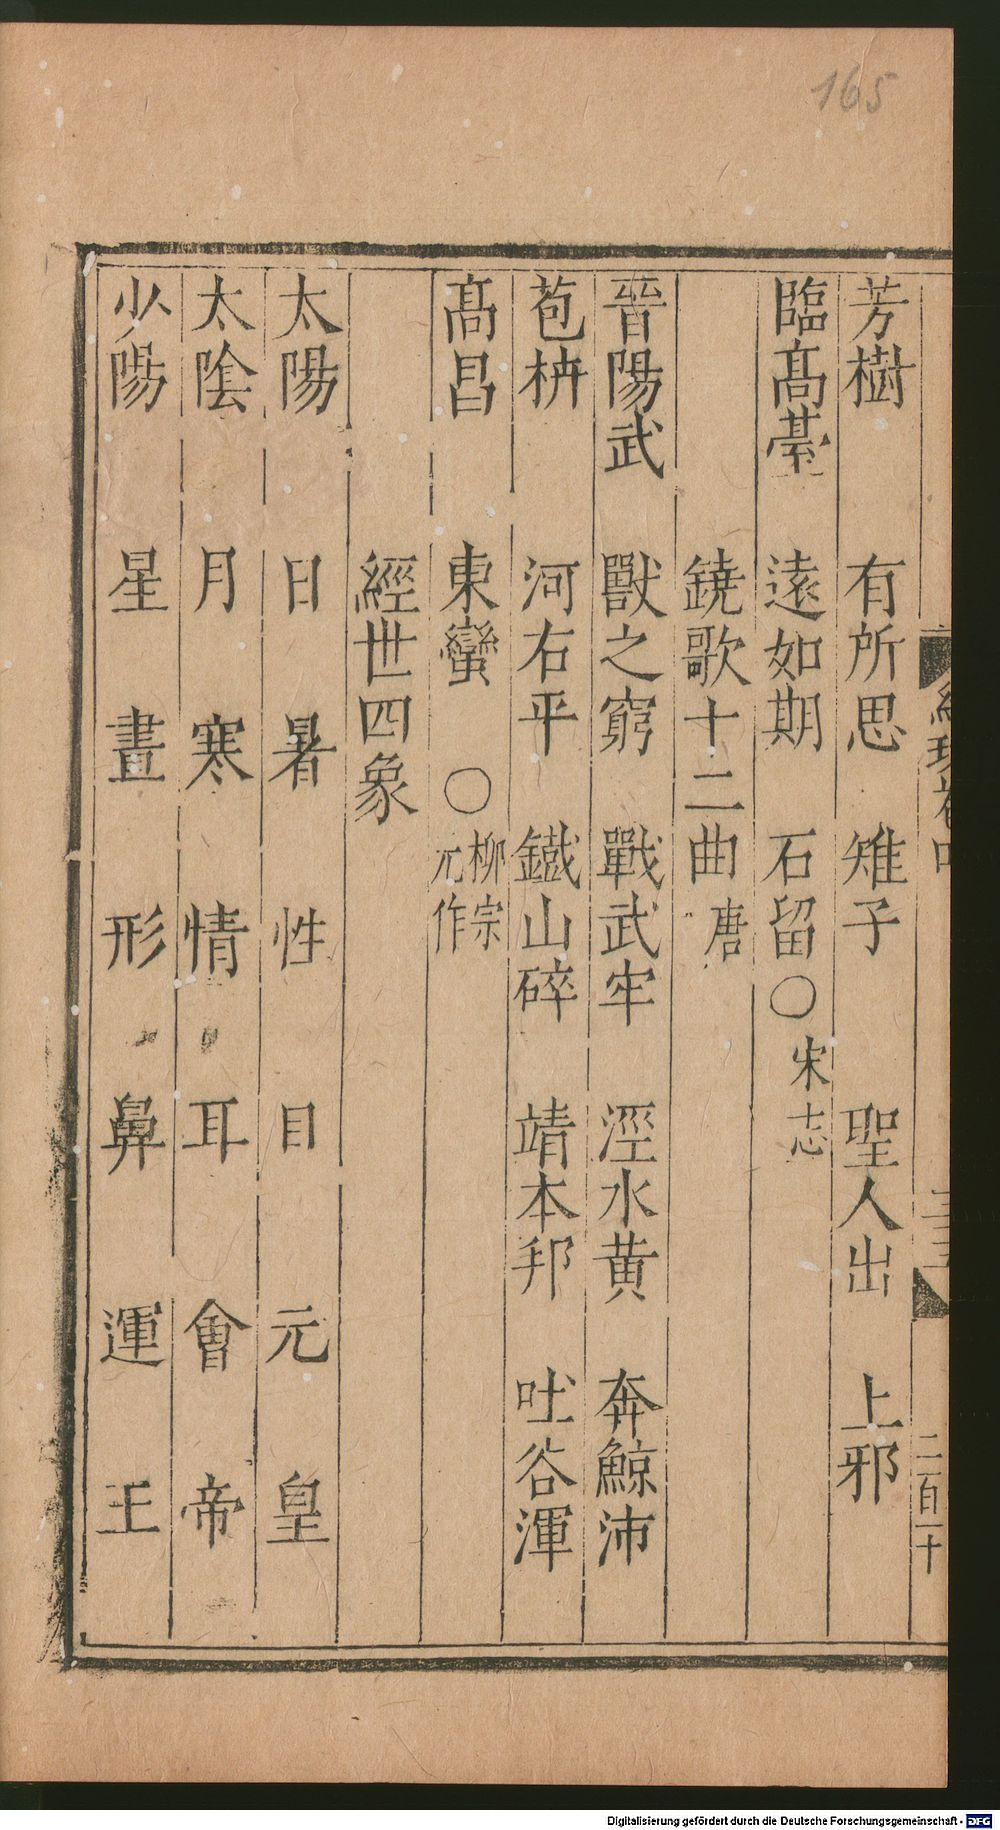 165
芳樹 有所思 雉子 聖人出 上邪
臨髙䑓 遠如期 石留〇宋志
鐃歌十二曲 唐
晉陽武 獸之窮 戰武牢 涇水黄 奔鯨沛
苞枿 河右平 鐵山碎 靖本邦 吐谷渾
髙昌 東蠻 〇柳宗元作
經世四象
太陽 日 暑 性 目 元 皇
太陰 月 寒 情 耳 會 帝
少陽 星 晝 形 鼻 運 王
二百一十
Digitalisierung gefördert durch die Deutsche Forschungsgemeinschaft - DFG